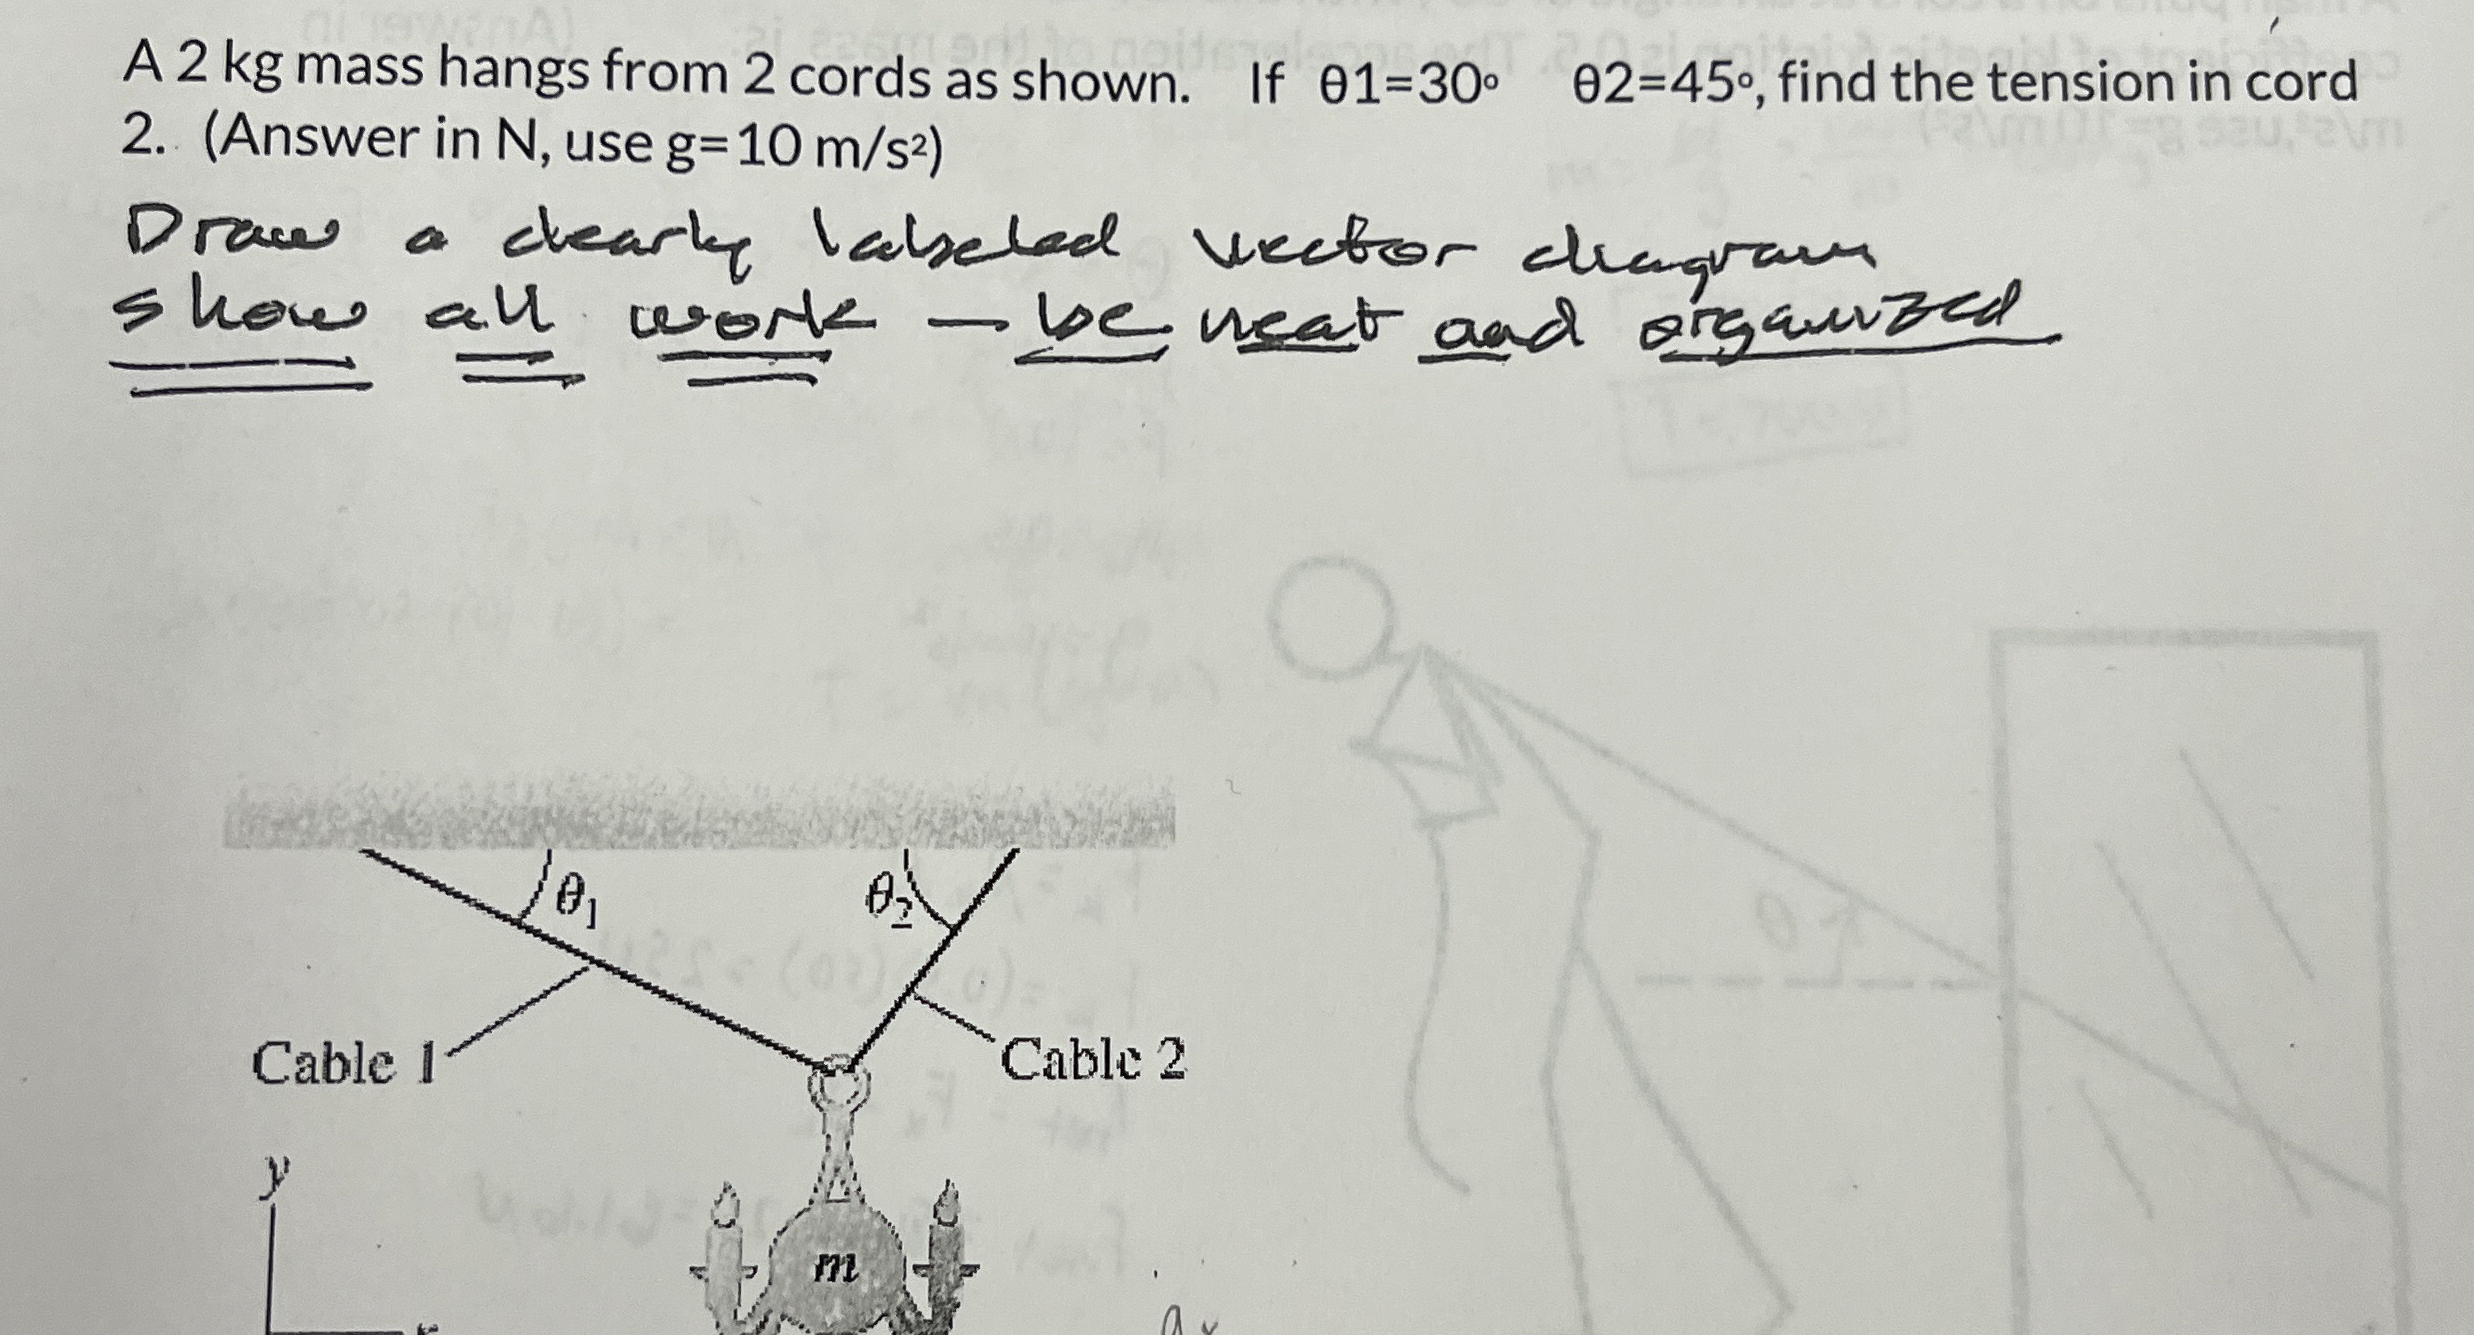 A 2 kg mass hangs from 2 cords as shown. If θ1=30° θ2=45°, find the tension in cord
2. (Answer in N, use g=10 m/s²)
Draw a clearly labeled vector diagram
show all work – be neat and organized
θ₁
θ₂
Cable 1
Cable 2
y
m